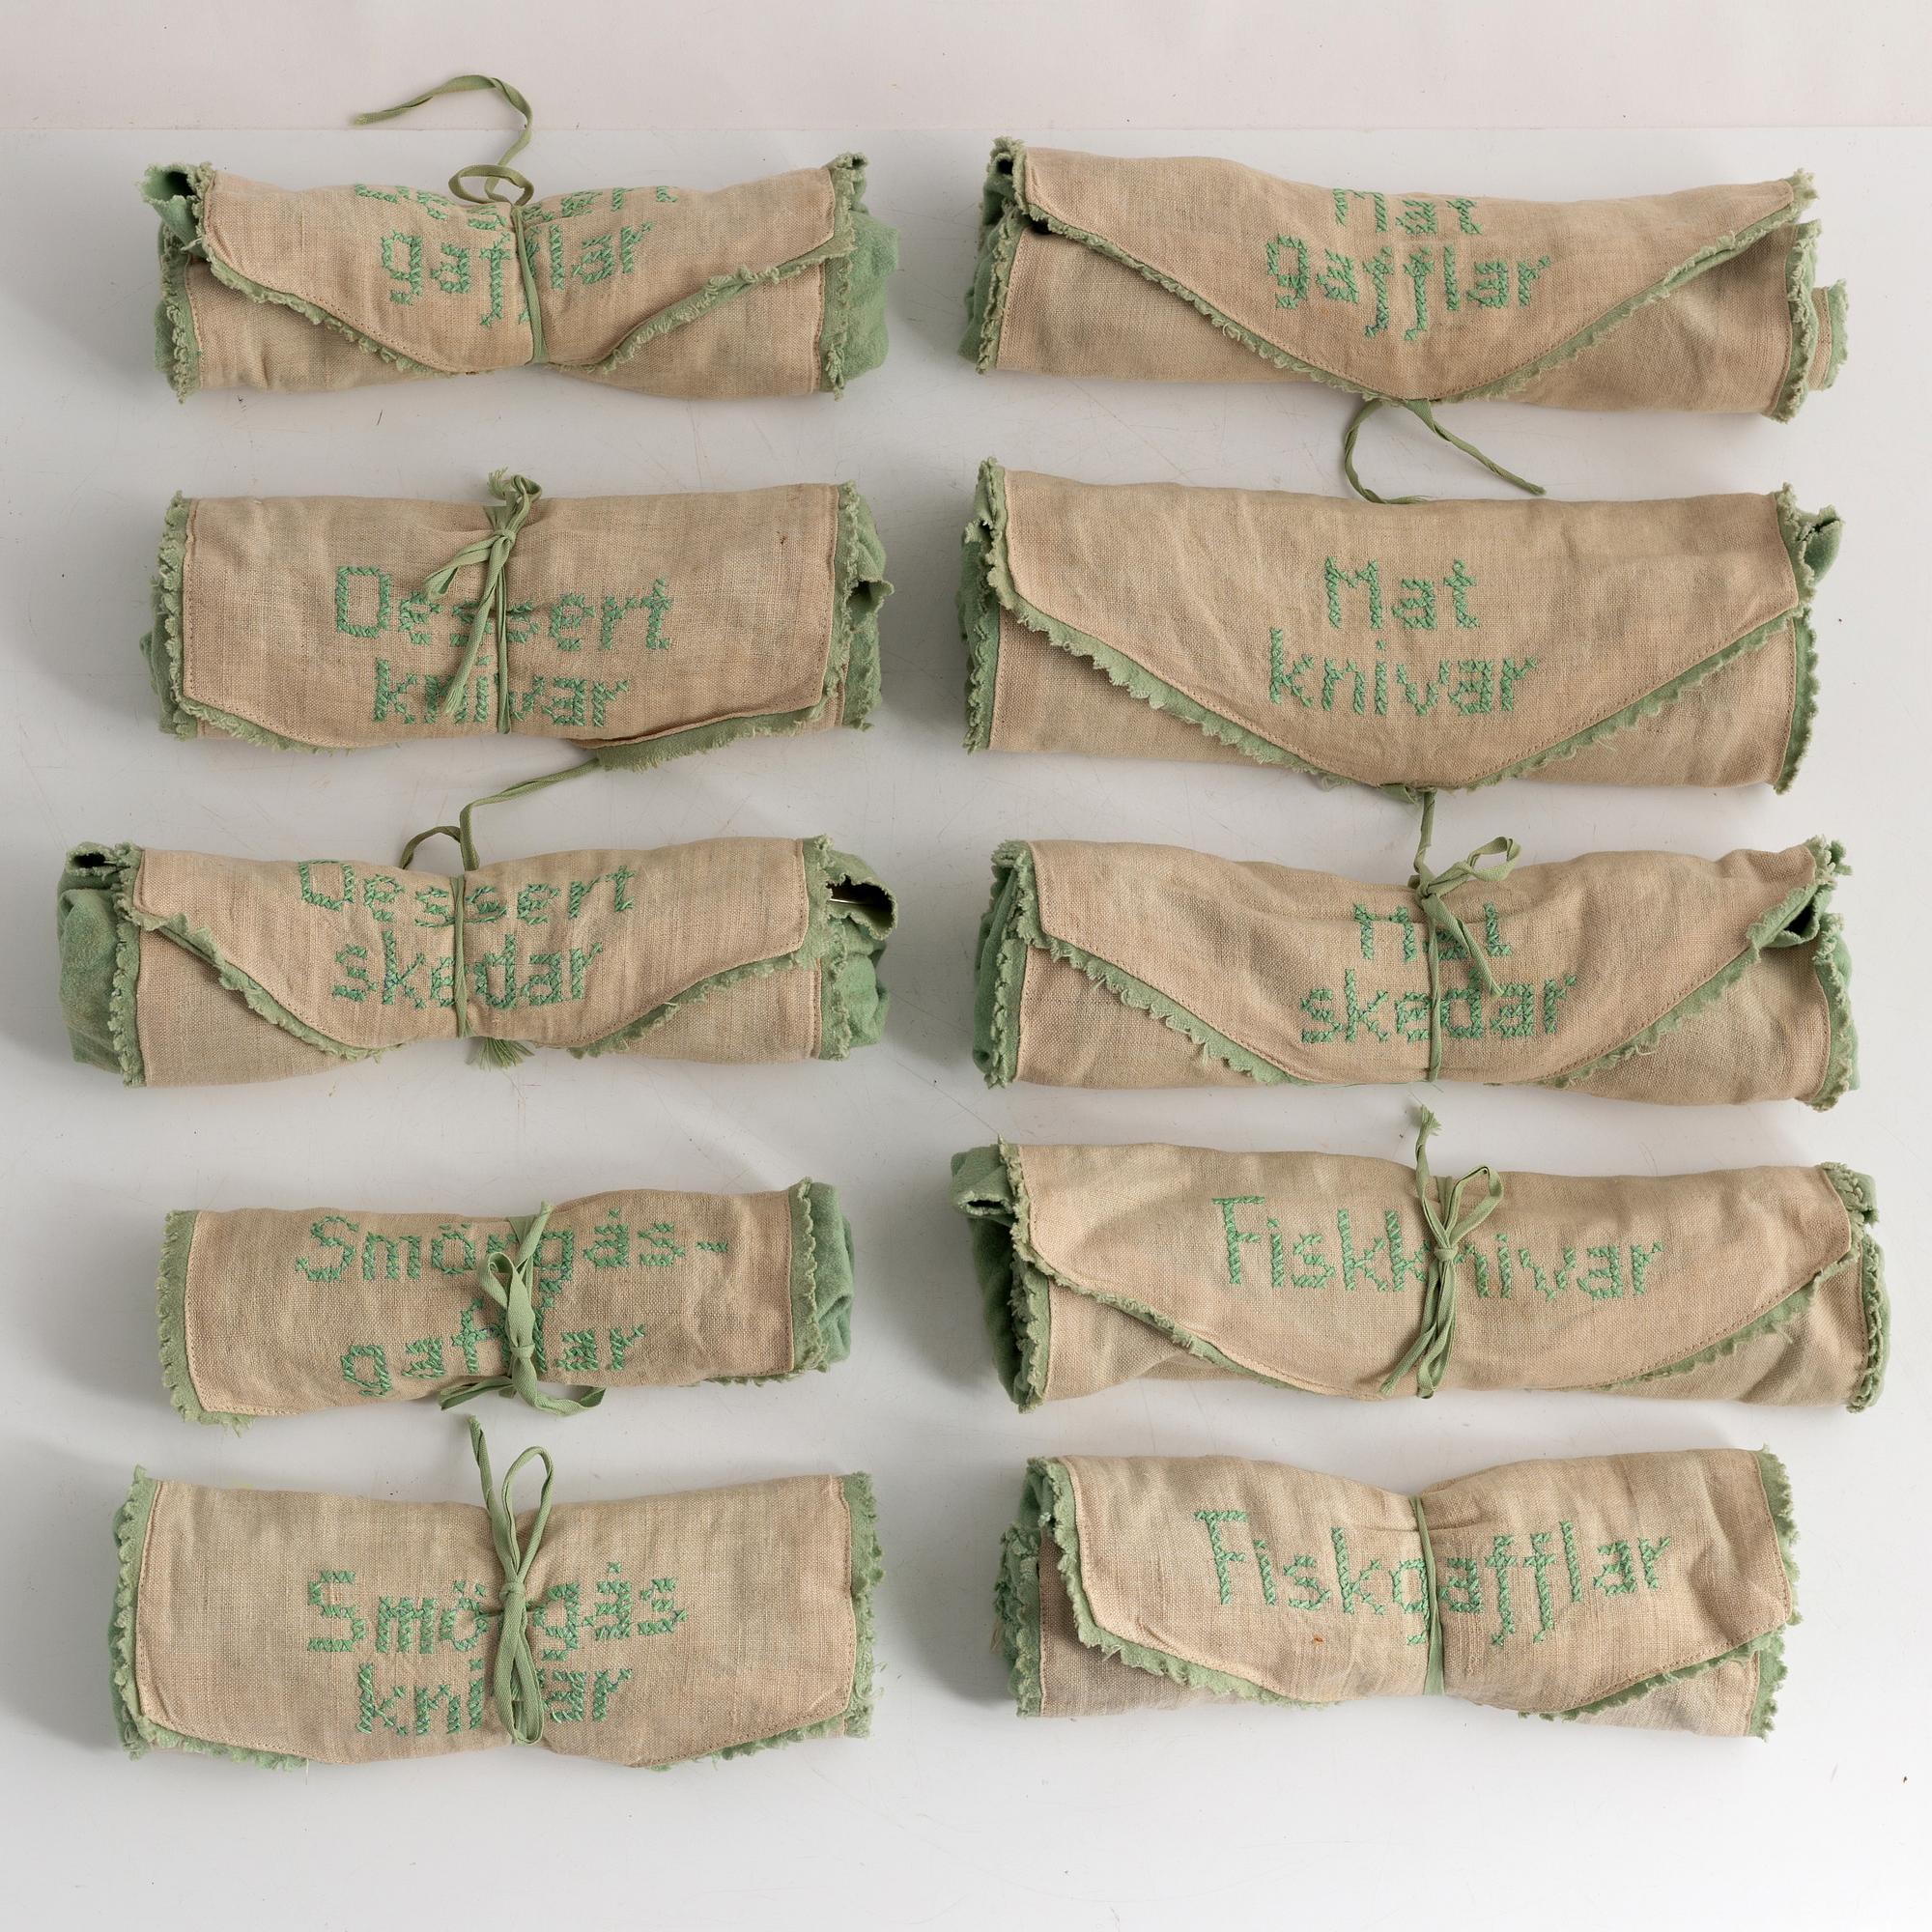 Dessert
gafflar
Mat
gafflar
Dessert
knivar
Mat
knivar
Dessert
skedar
Mat
skedar
Smörgås-
gafflar
Fiskknivar
Smörgås
knivar
Fiskgafflar